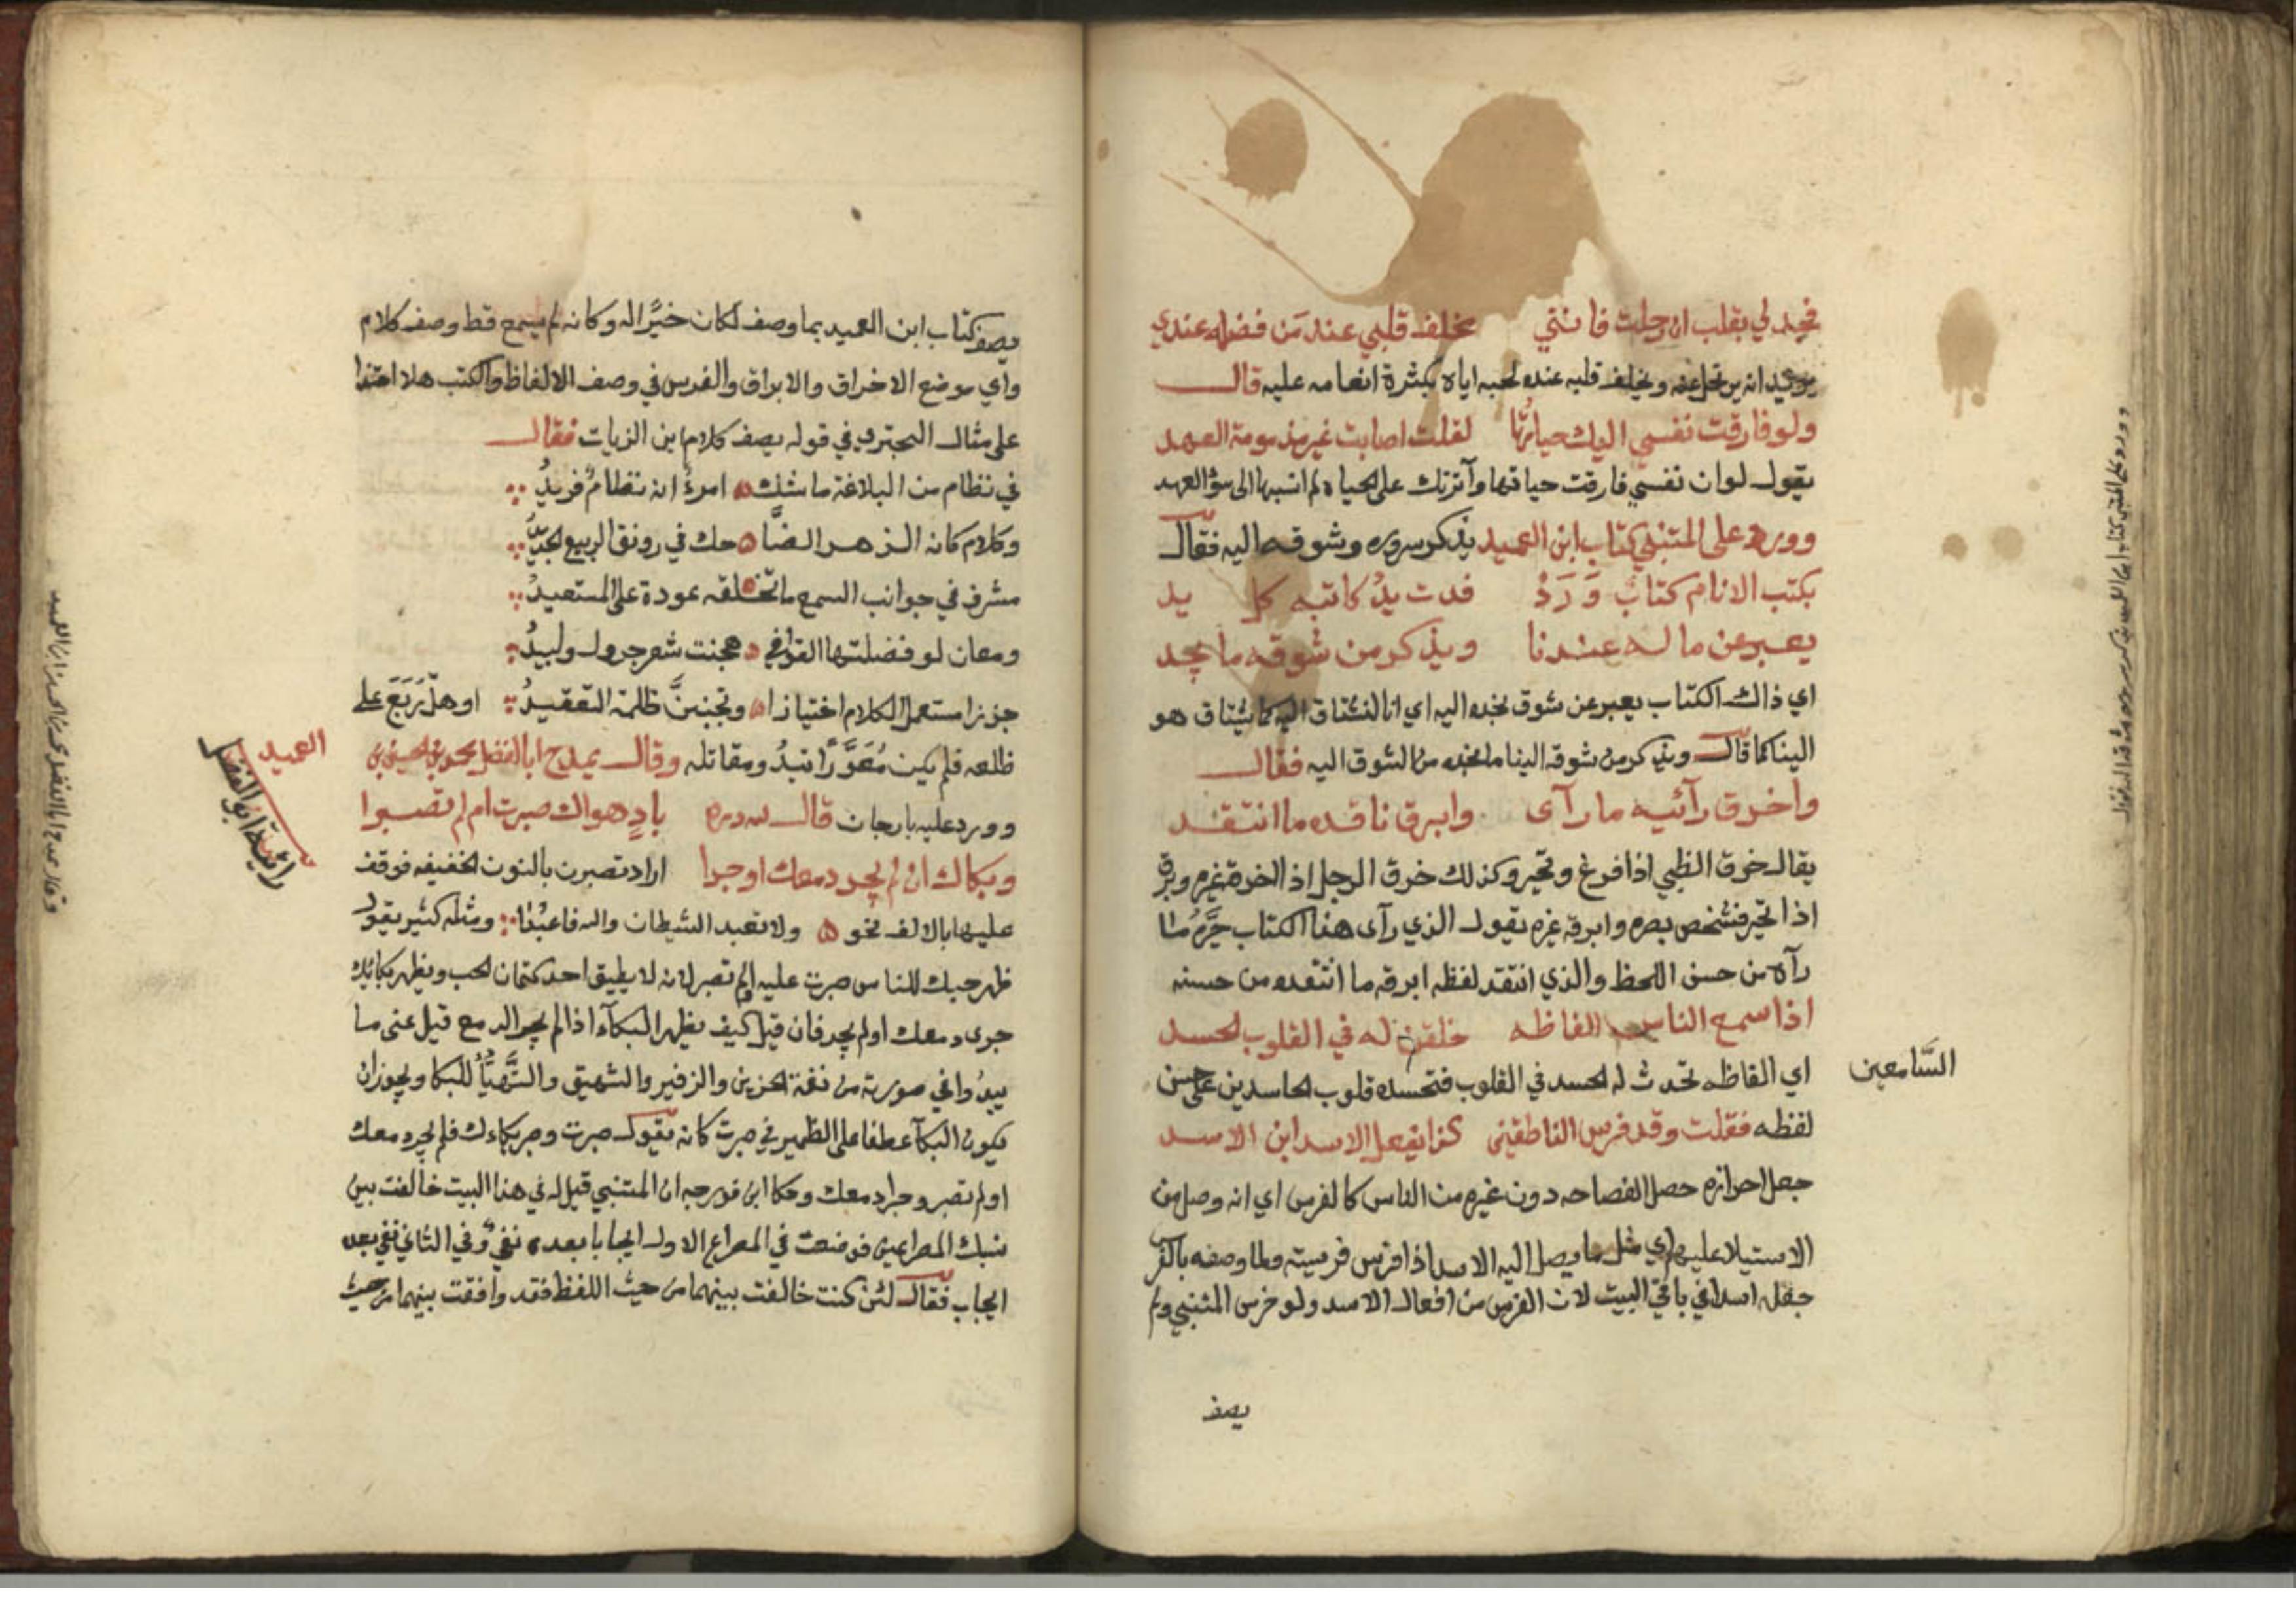 فجد لي بقلب ان رحلت فانني مخلف قلبي عند من فضله عندي
يريد انه يرتحل عنه ويخلف قلبه عنده لحبه اياه بكثرة انعامه عليه قال
ولو فارقت نفسي اليك حياتها لقلت اصابت غير مذمومة العهد
يقول لو ان نفسي فارقت حياتها وآثرتك على الحياة لم انسبها الى سؤ العهد
وورد على المتنبي كتاب ابن العميد يذكر سروره وشوقه اليه فقال
بكتب الانام كتاب وَرَدْ فدت يدُ كاتبه كل يد
يعبر عن ما له عندنا ويذكر من شوقه ما نجد
اي ذاك الكتاب يعبر عن شوق نجده اليه اي انا لنشتاق اليه كما يشتاق هو
الينا كما قال ويذكر من شوقه الينا ما نجده من الشوق اليه فقال
واخرق رآئيه ما رآى وابرق ناقده ما انتقد
يقال خرق الظبي اذا فزع وتحير وكذلك خرق الرجل اذ اخرقه غيره وبرق
اذا تحير فشخص بصره وابرقه غيره يقول الذي رآى هذا الكتاب حيَّره ما
رآه من حسن اللحظ والذي انتقد لفظه ابرقه ما انتقده من حسنه
اذا سمع الناس الفاظه خلقن له في القلوب الحسد
اي الفاظه تحدث له الحسد في القلوب فتحسده قلوب الحاسدين على حسن
السَّامعين
لفظه فقلت وقد فرس الناطقين كذا يفعل الاسد ابن الاسد
جعل احرازه حصل الفصاحه دون غيره من الناس كالفرس اي انه وصل من
الاستيلا عليها اي مثل ما يصل اليه الاسد اذا فرس فريسته ولما وصفه بالفرس
جعله اسدا في باقي البيت لان الفرس من افعال الاسد ولو خرس المتنبي ولم
يصف
وورد على المتنبي كتاب ابن العميد يذكر سروره وشوقه اليه فقال
يصف كتاب ابن العميد بما وصف لكان خيرًا له وكانه لم يسمع قط وصف كلام
واي موضع الاخراق والابراق والفرس في وصف الالفاظ والكتب هلا احتذا
على مثال البحتري في قوله يصف كلام ابن الزيات فقال
في نظام من البلاغة ما شك امرءٌ انه نظامُ فريدُ
وكلام كانه الزهر الضا حك في رونق الربيع الجديدُ
مشرق في جوانب السمع ما يخلقه عودة على المستعيدُ
ومعان لو فضلتها القوافي هجنت شعر جرول ولبيدُ
حزن استعمل الكلام اختيارا وتجنبنَّ ظلمة التعقيدُ او هلّ رَبَعَ على
ظلعه فلم يكن مُعَوَّرًا تبدُ ومقاتله وقال يمدح ابا الفضل محمد بن الحسين بن
العميد
رائية ابو الفضل
وورد عليه بارجان قال لله دره بادٍ هواك صبرت ام لم تصبرا
وبكاك ان لم يجر دمعك او جرا اراد تصبرن بالنون الخفيفه فوقف
عليها بالالف نحو ولا تعبد الشيطان والله فاعبُدَا ومثله كثير يقول
ظهر حبك للناس صبرت عليه ام لم تصبر لانه لا يطيق احد كتمان الحب ويظهر بكائك
جرى دمعك او لم يجر فان قيل كيف يظهر البكآء اذا لم يجر الدمع قيل عنى ما
يبدُوا في صورته من نغمة الحزين والزفير والشهيق والتَّهيُّأ للبكا ويجوز ان
يكون البكآ عطفا على الظمير في صبرت كانه يقول صبرت وصبر بكاءك فلم يجر دمعك
او لم تصبر وجرا دمعك وحكا ابن فورجه ان المتنبي قيل له في هذا البيت خالفت بين
سبك المصراعين فوضعت في المصراع الاول ايجابا بعده نفيٌ وفي الثاني نفي بعده
ايجاب فقال لئن كنت خالفت بينهما من حيث اللفظ فقد وافقت بينهما من حيث
وقال يمدح ابا الفضل محمد بن الحسين ابن العميد